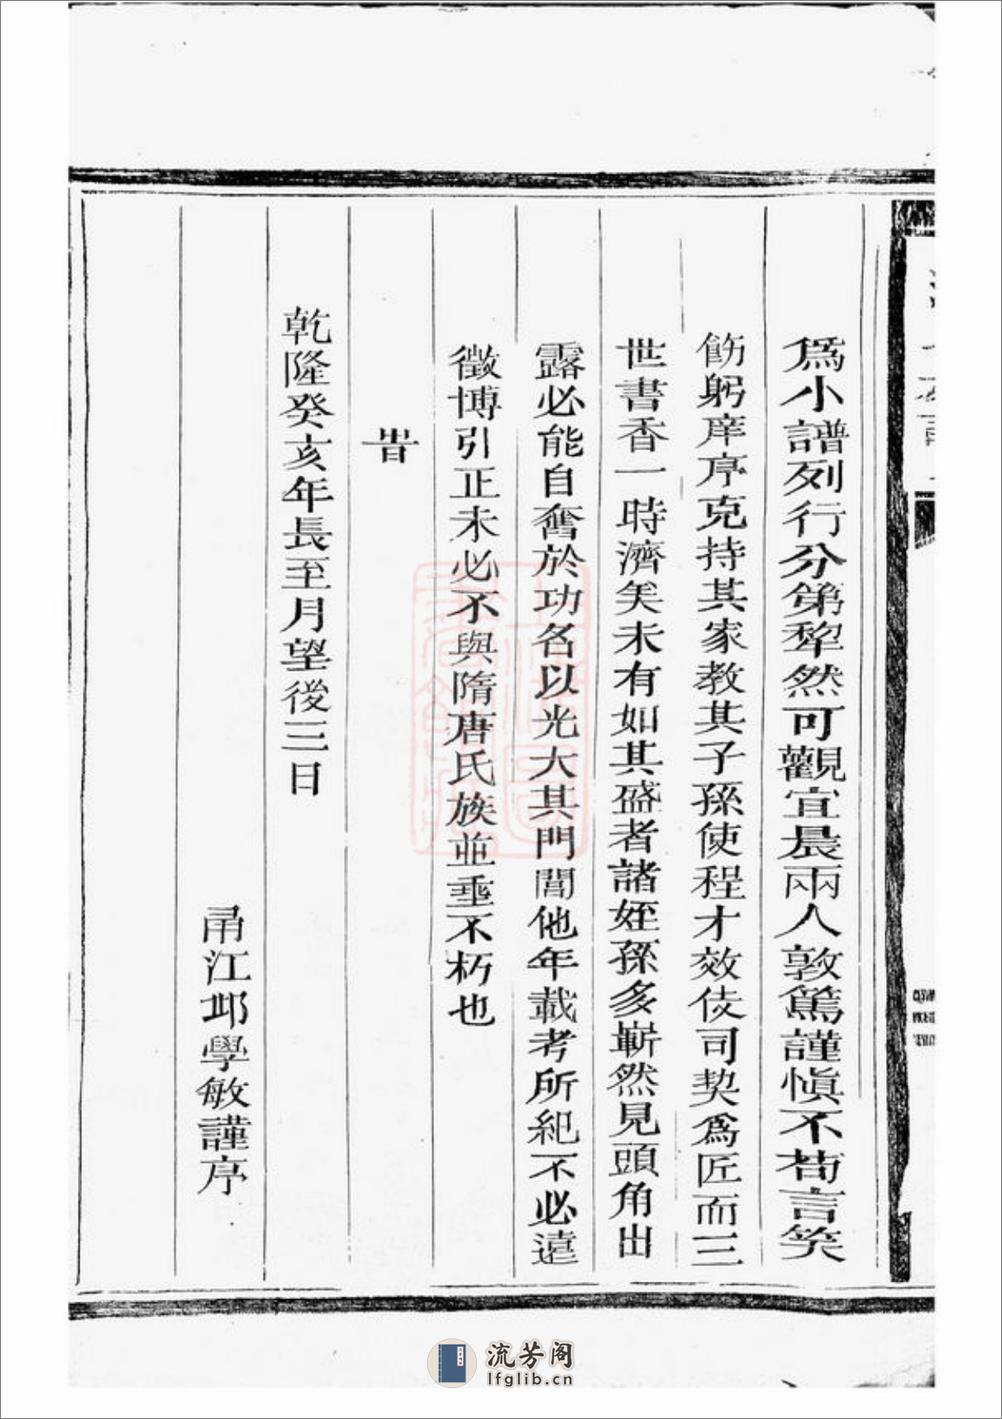 爲小譜列行分第犂然可觀宜晨兩人敦篤謹愼不茍言笑
飭躬庠序克持其家教其子孫使程才效伎司契爲匠而三
世書香一時濟美未有如其盛者諸姪孫多嶄然見頭角出
露必能自奮於功名以光大其門閭他年載考所紀不必遠
徵博引正未必不與隋唐氏族並垂不朽也
旹
乾隆癸亥年長至月望後三日
甬江邶學敏謹序
流芳阁
lfglib.cn